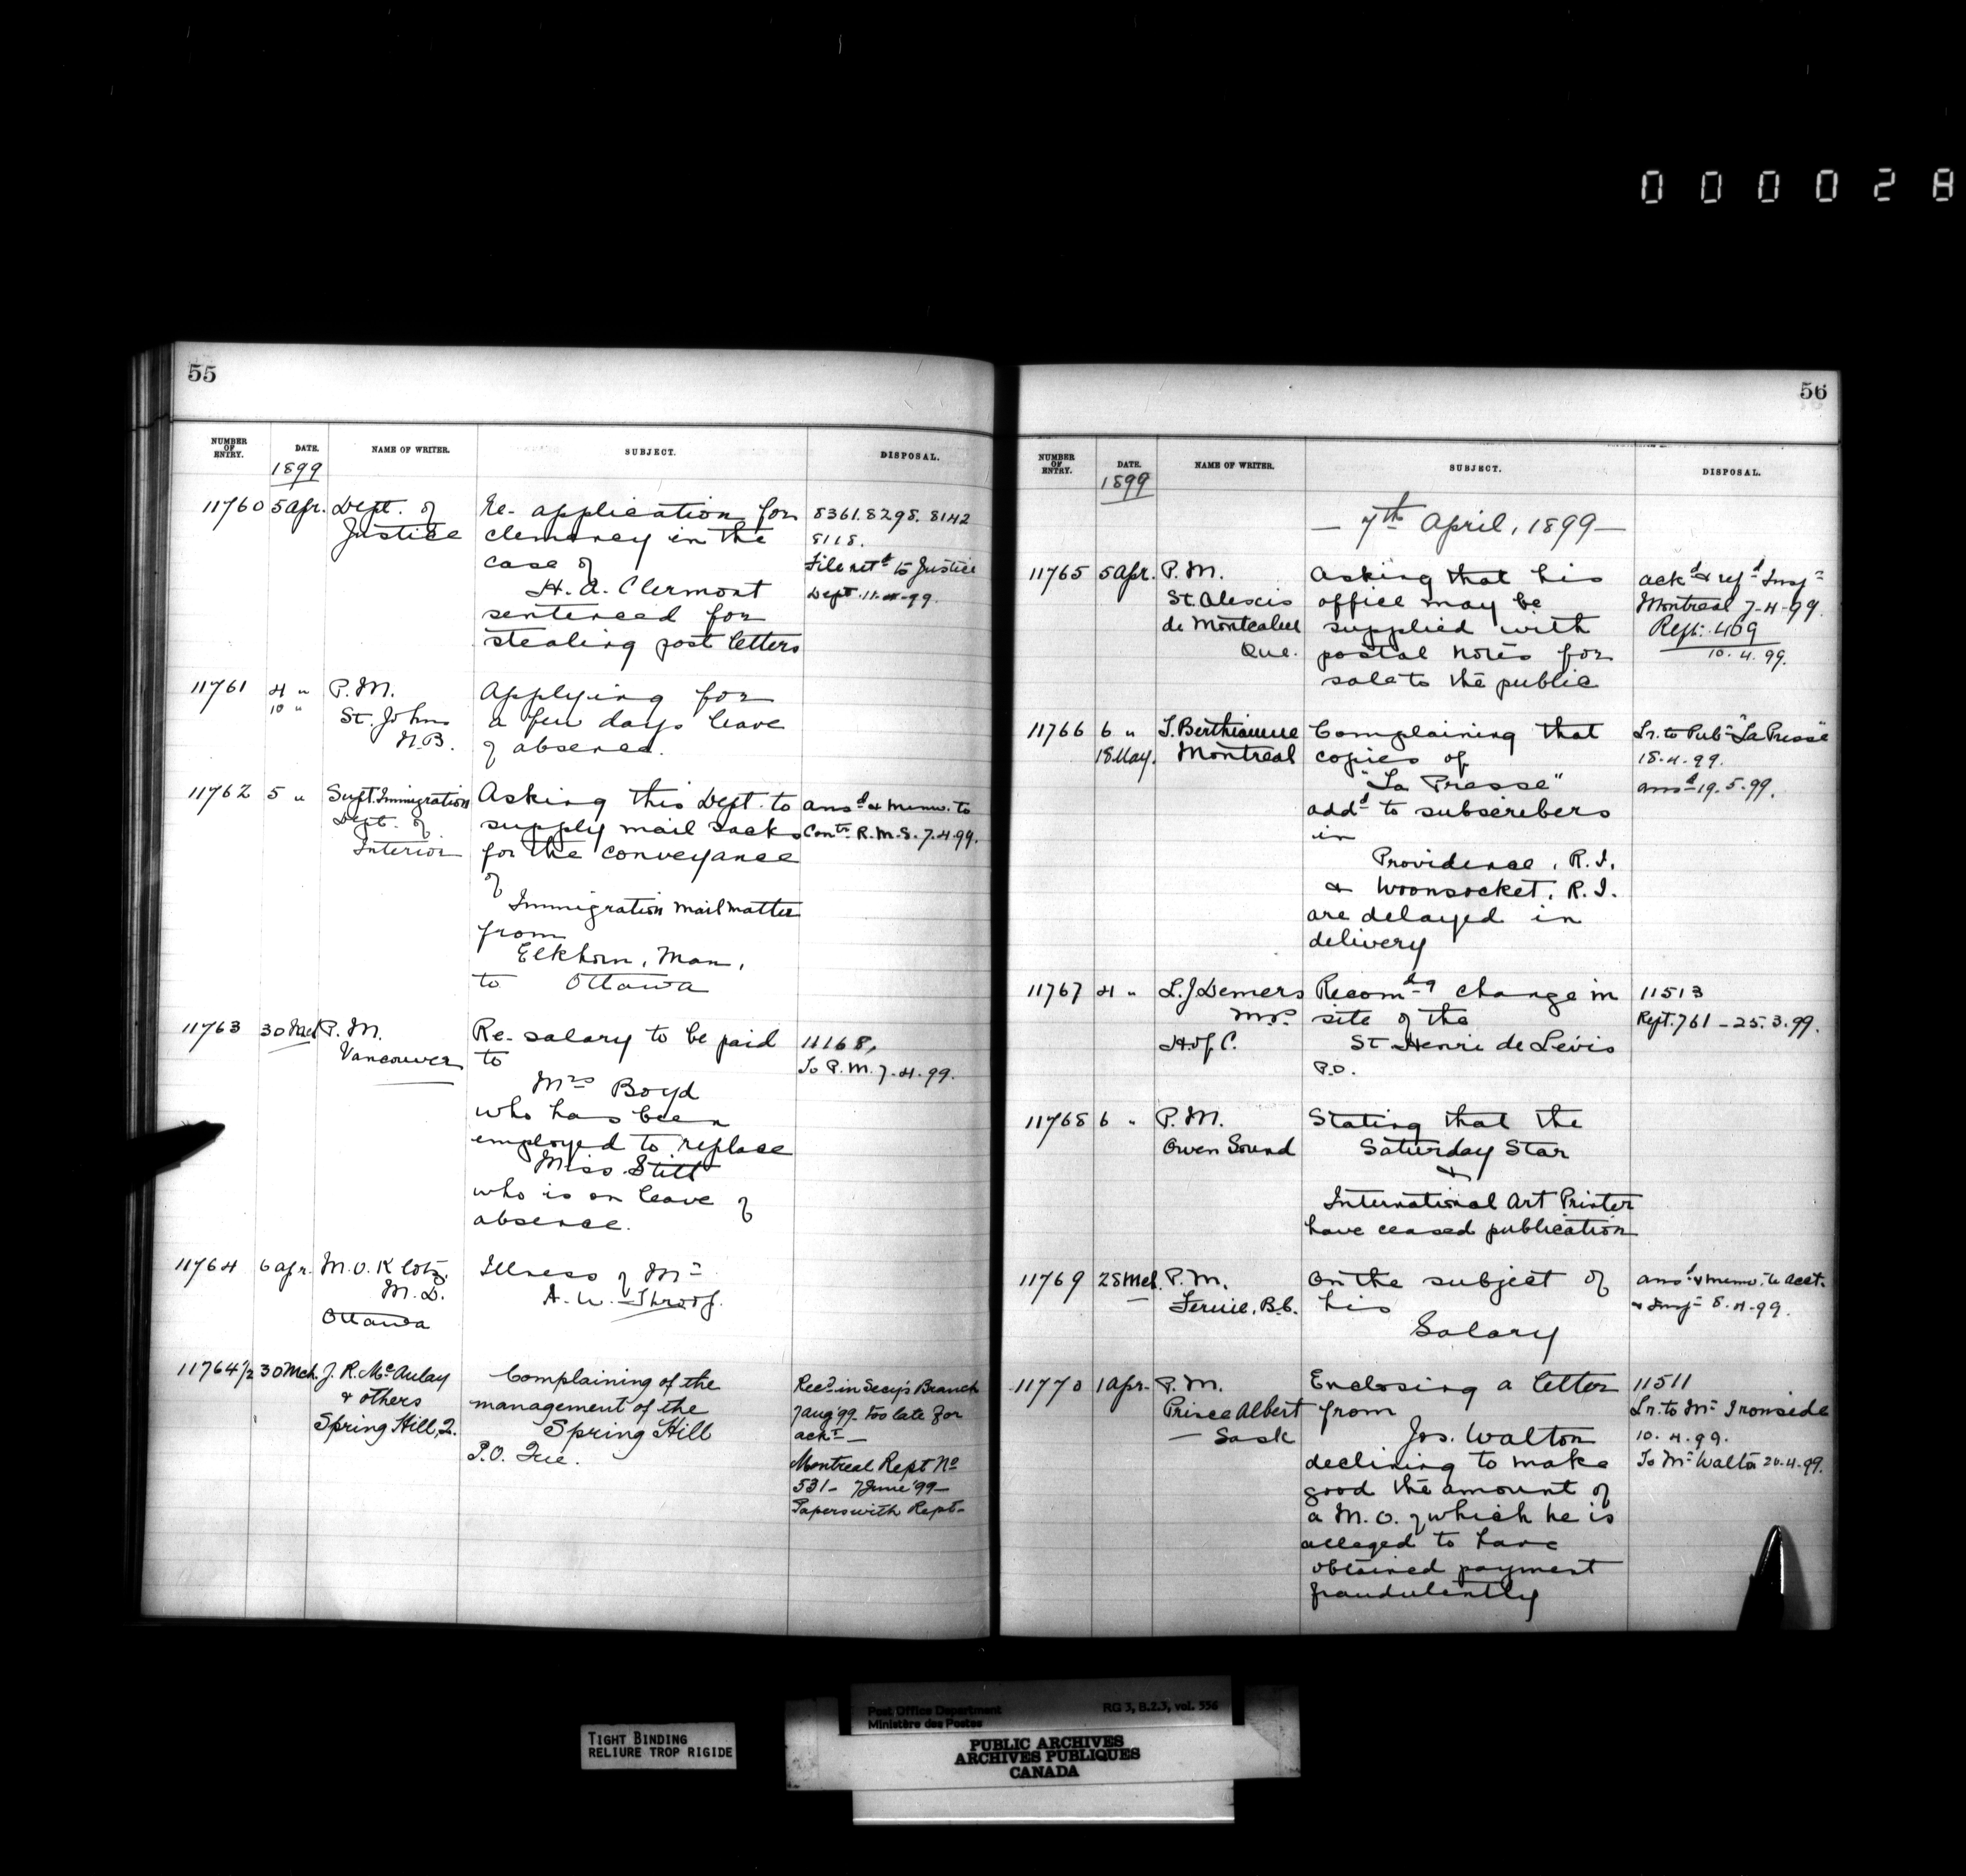 000028
55
NUMBER OF ENTRY. DATE. NAME OF WRITER. SUBJECT. DISPOSAL.
1899
11760 5 Apr. Dept. of Re- application for 8361. 8298. 8142
Justice clemency in the 8118.
case of File retd to Justice
H. A. Clermont Dept. 11-4-99.
sentenced for
stealing post letters
11761 4 " P. M. Applying for
10 " St. John a few days leave
N.B. of absence.
11762 5 " Supt. Immigration Asking this Dept. to ansd & memo. to
Dept. of supply mail sacks Contr. R. M. S. 7.4.99.
Interior for the conveyance
of
Immigration mail matter
from
Elkhorn, Man,
to Ottawa
11763 30 Mch P. M. Re- salary to be paid 11168,
Vancouver to To P. M. 7-4-99.
Mrs Boyd
who has been
employed to replace
Miss Stitt
who is on leave of
absence.
11764 6 apr. M. O. Klotz, Illness of Mr
M. D. A. W. Throop.
Ottawa
11764½ 30 Mch. J. R. McAulay Complaining of the Recd in Secy's Branch
& others management of the 7 Aug '99 too late for
Spring Hill, Q. Spring Hill ackt —
P.O. Que. Montreal Rept No
531 - 7 June '99 —
Papers with Rept -
56
NUMBER OF ENTRY. DATE. NAME OF WRITER. SUBJECT. DISPOSAL.
1899
— 7th April, 1899 —
11765 5 Apr. P. M. Asking that his ackd & refd Inspr
St. Alexis office may be Montreal 7-4-99.
de Montcalm supplied with Rept. 409
Que. postal notes for 10.4.99.
sale to the public
11766 6 " T. Berthiaume Complaining that Lr. to Pubr "La Presse"
18 May. Montreal copies of 18.4.99.
"La Presse" ansd 19.5.99.
addd to subscribers
in
Providence, R. I.
& Woonsocket, R. I.
are delayed in
delivery
11767 4 " L. J Demers Recomdg change in 11513
M.P. site of the Rept. 761 - 25.3.99.
H. of C. St Henri de Levis
P.O.
11768 6 " P. M. Stating that the
Owen Sound Saturday Star
&
International Art Printer
have ceased publication
11769 28 Mch. P. M. On the subject of ansd & memo. to acct.
Fernie, B.C. his & Inspr 8.4.99.
Salary
11770 1 Apr. P. M. Enclosing a letter 11511
Prince Albert from Lr. to Mr Ironside
— Sask Jos. Walton 10.4.99.
declining to make To Mr Walton 20.4.99.
good the amount of
a M. O. of which he is
alleged to have
obtained payment
fraudulently
TIGHT BINDING
RELIURE TROP RIGIDE
Post Office Department RG 3, B.2.3, vol. 556
Ministère des Postes
PUBLIC ARCHIVES
ARCHIVES PUBLIQUES
CANADA